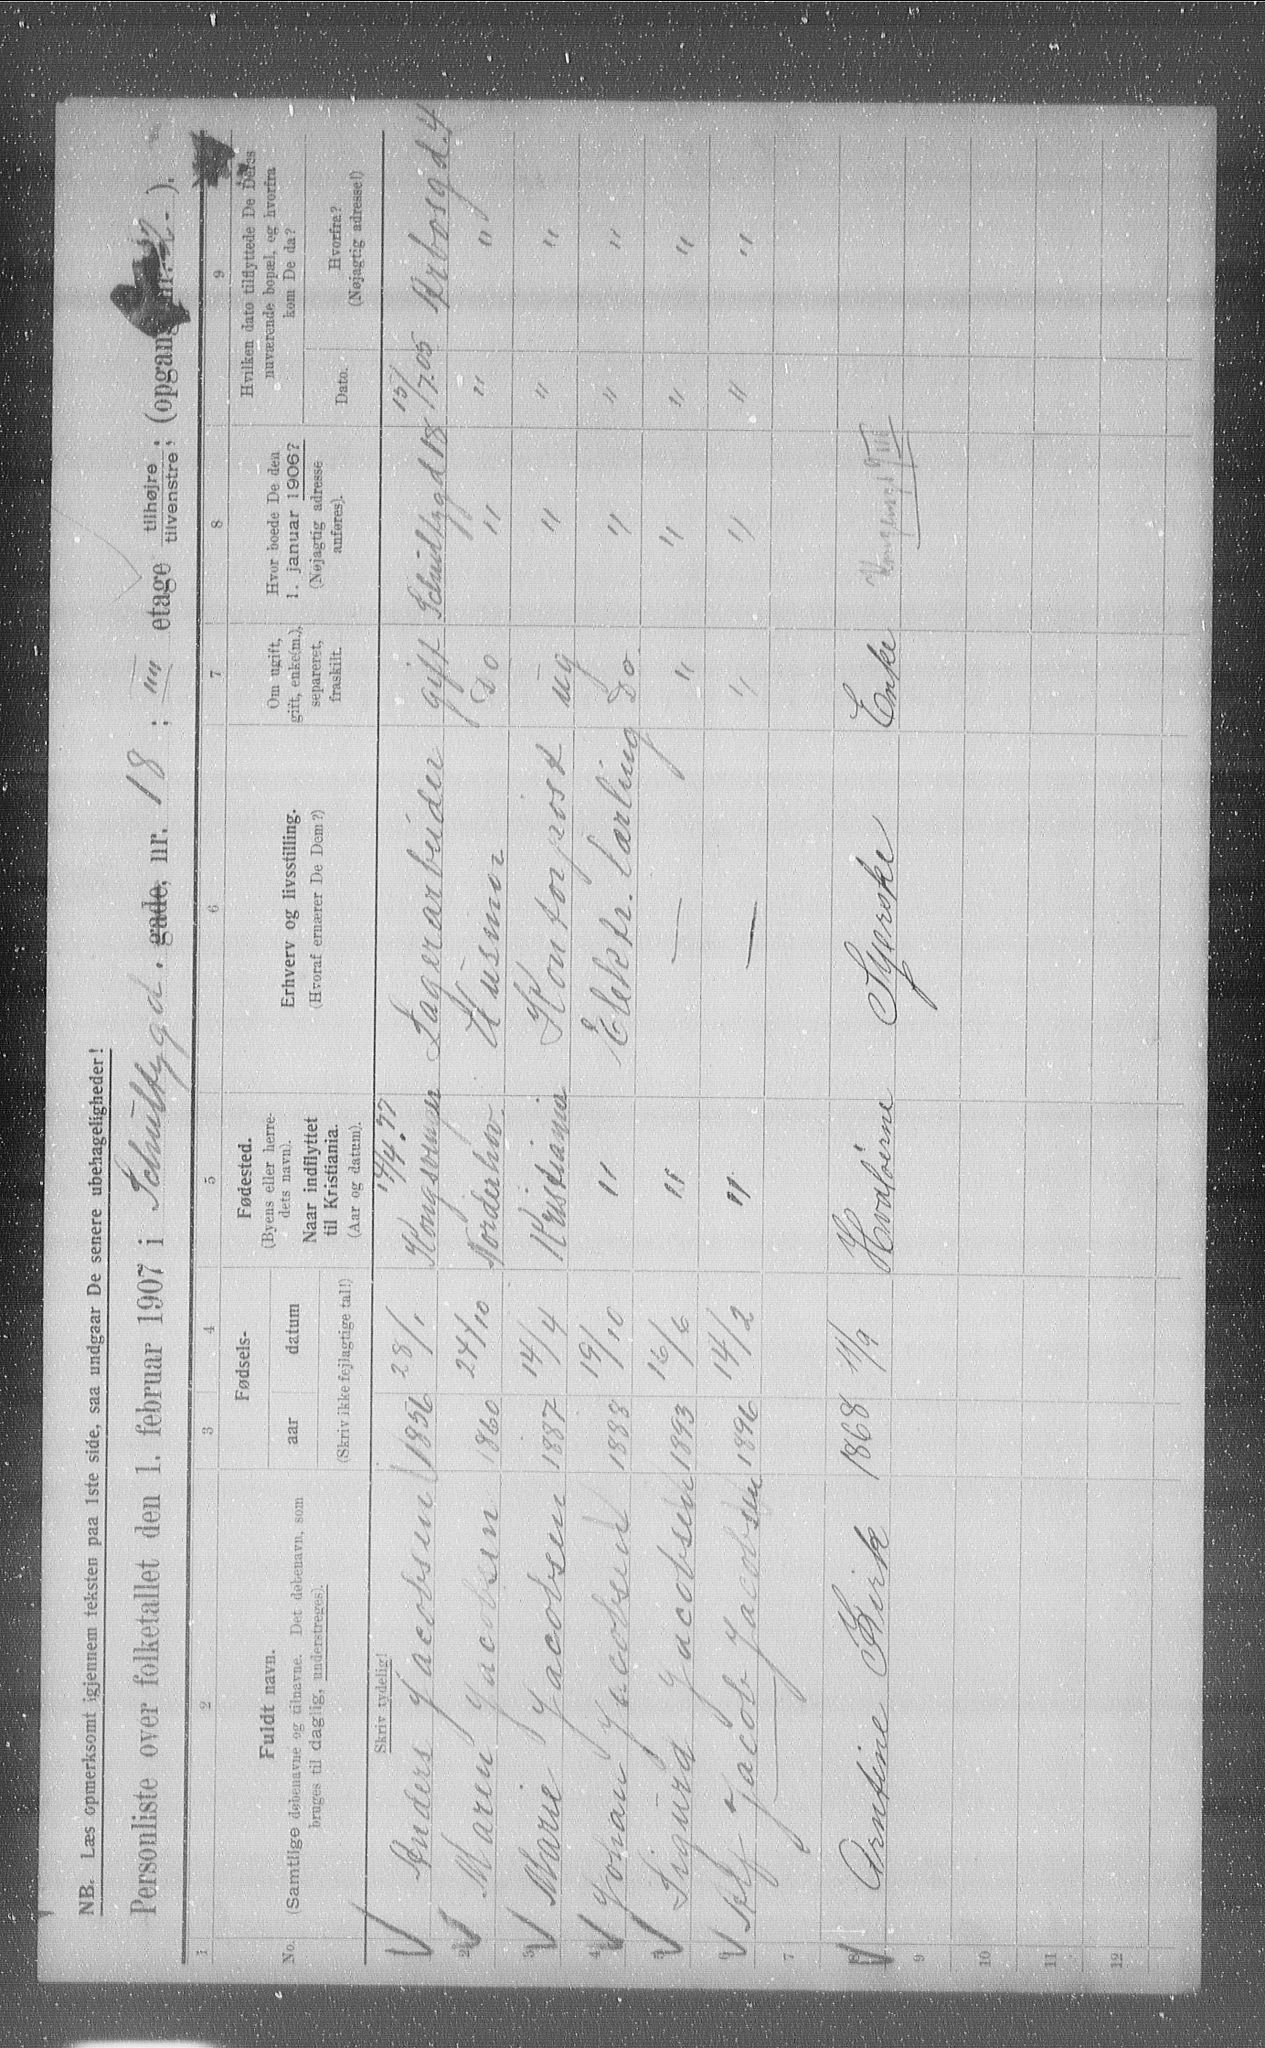 NB. Læs opmerksomt igjennem teksten paa 1ste side, saa undgaar De senere ubehageligheder!
Personliste over folketallet den 1. februar 1907 i Schultzgd. gade, nr. 18 ; III etage tilhøjre, tilvenstre, (opgang nr. ).
1 2 3 4 5 6 7 8 9
No.
Fuldt navn.
(Samtlige døbenavne og tilnavne. Det døbenavn, som
bruges til daglig, understreges).
Skriv tydelig!
Fødsels-
aar datum
(Skriv ikke fejlagtige tal!)
Fødested.
(Byens eller herre-
dets navn).
Naar indflyttet
til Kristiania.
(Aar og datum).
Erhverv og livsstilling.
(Hvoraf ernærer De Dem?)
Om ugift,
gift, enke(m.),
separeret,
fraskilt.
Hvor boede De den
1. januar 1906?
(Nøjagtig adresse
anføres).
Hvilken dato tilflyttede De Deres
nuværende bopæl, og hvorfra
kom De da?
Dato.
Hvorfra?
(Nøjagtig adresse!)
Anders Jacobsen 1856 28/1 Kongsvinger Lagerarbeider gift Schultzgd 18 15/7 05 Arbosgd. 4
2 Maren Jacobsen 1860 24/10 Norderhov. Husmor Do " " "
3 Marie Jacobsen 1887 14/4 Kristiania Kontorpost ug " " "
4 Johan Jacobsen 1888 19/10 " Elektr. Lærling Do. " " "
5 Sigurd Jacobsen 1893 16/6 " — " " " "
6 Alf Jacob Jacobsen 1896 14/2 " — " " " "
7
8 Arntine Kirk 1868 11/9 Hvaløerne Syerske Enke
9
10
11
12